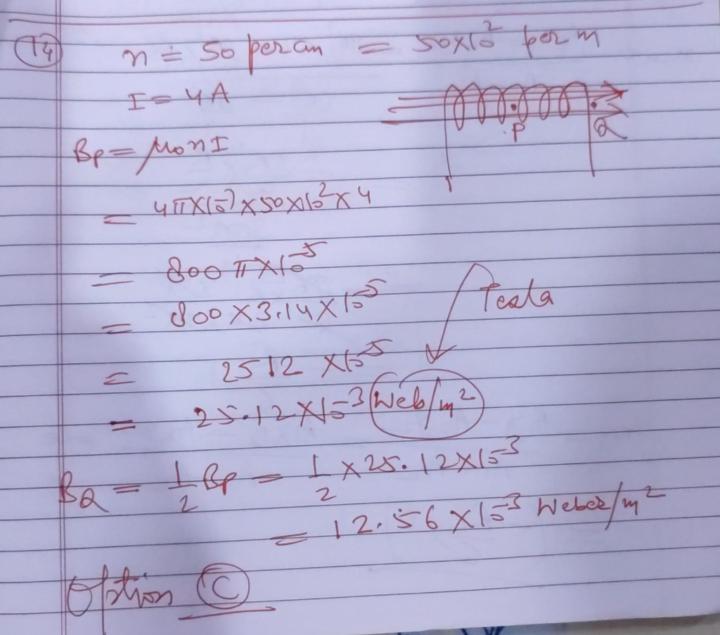 14 n = 50 per cm = 50×10² per m
I = 4A
P Q
Bp = μ₀nI
= 4π×10⁻⁷×50×10²×4
= 800 π×10⁻⁵
= 800×3.14×10⁻⁵
Tesla
= 2512 ×10⁻⁵
= 25.12×10⁻³ Web/m²
BQ = 1/2 Bp = 1/2 ×25.12×10⁻³
= 12.56 ×10⁻³ Weber/m²
Option C